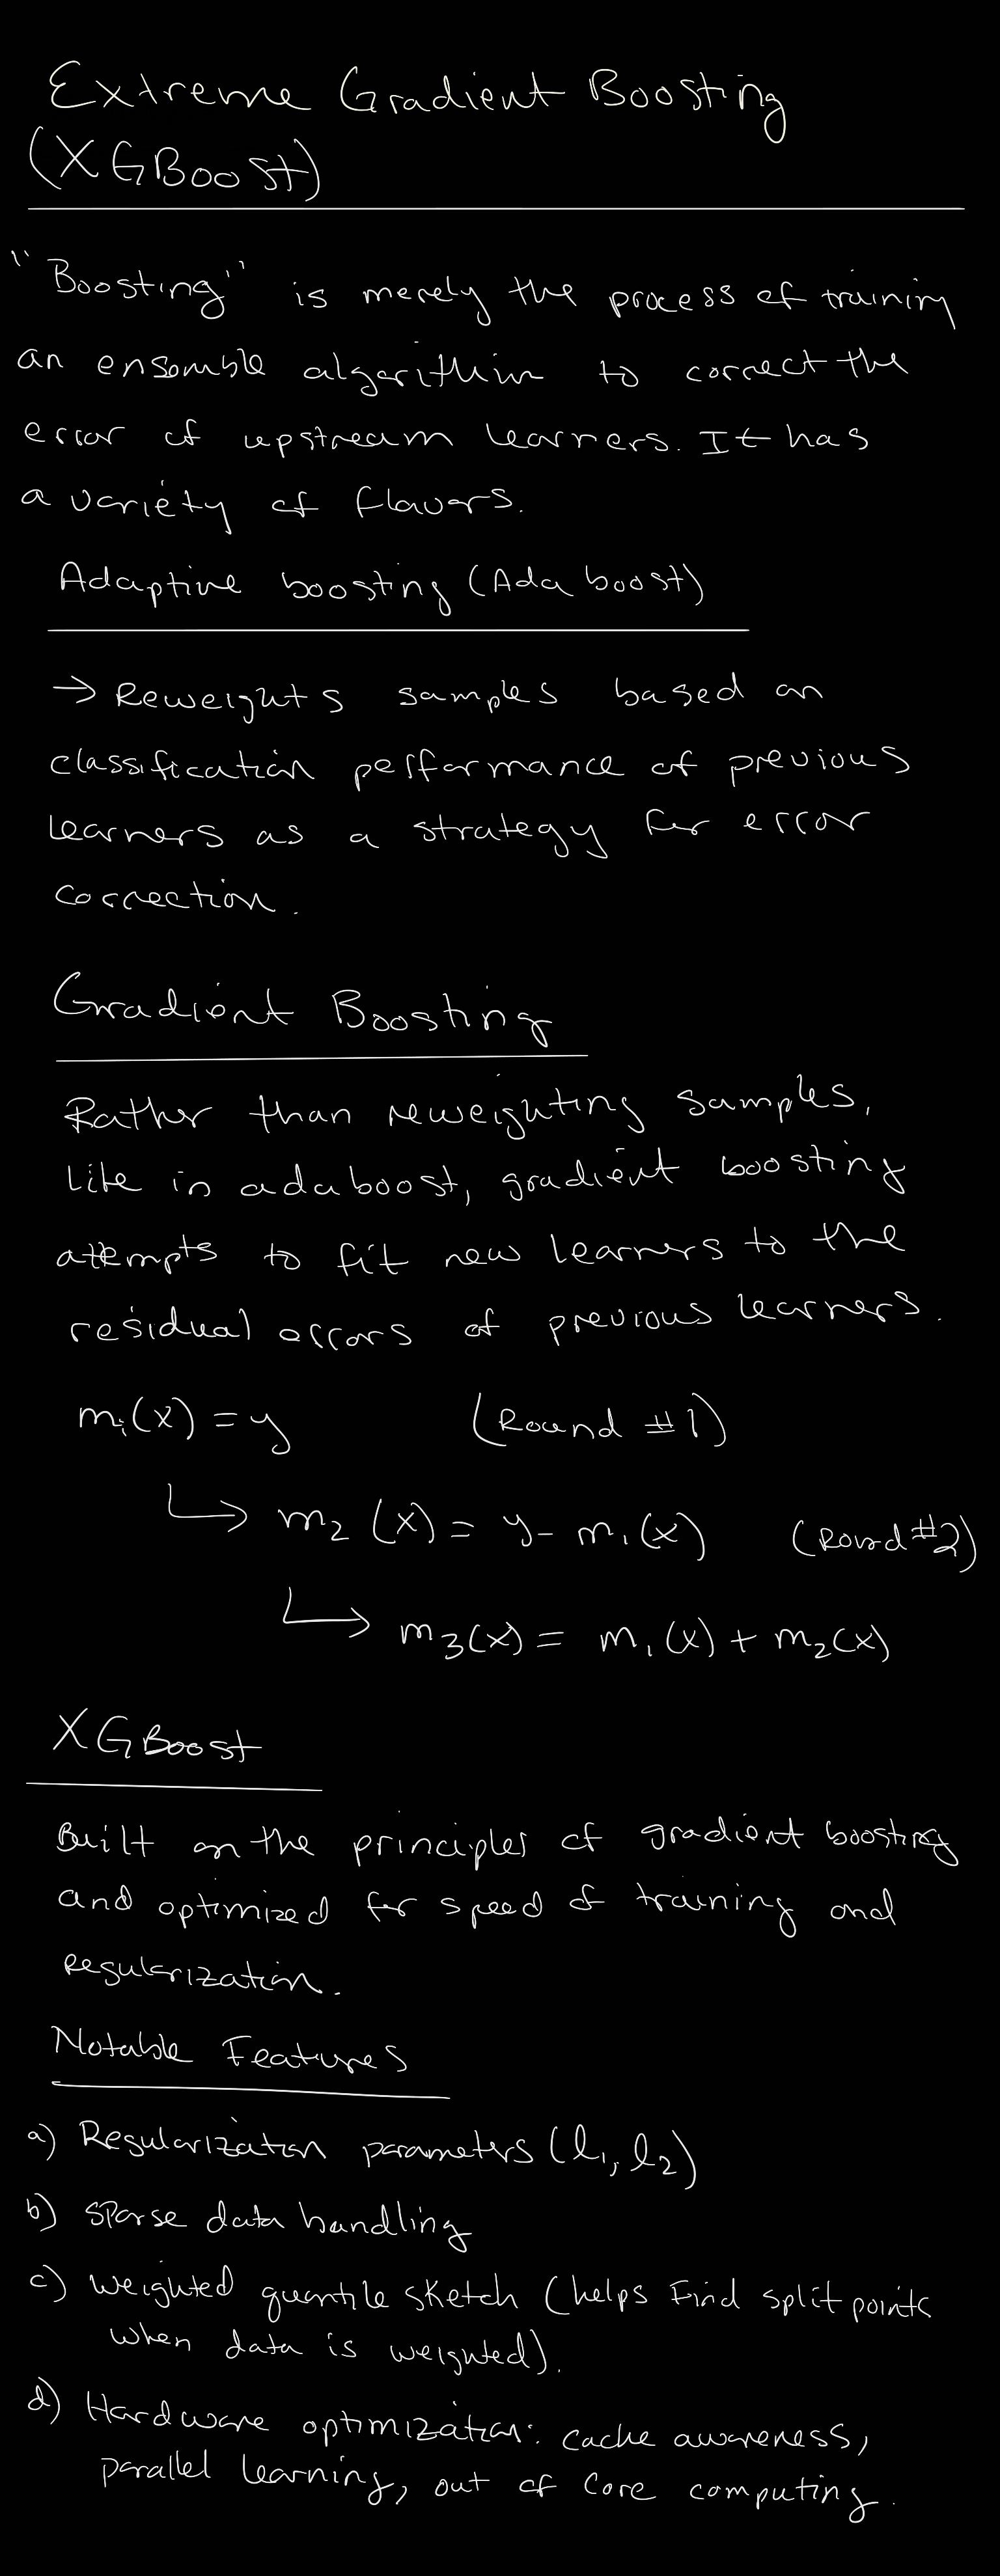 Extreme Gradient Boosting
(XGBoost)
"Boosting" is merely the process of training
an ensemble algorithim to correct the
error of upstream learners. It has
a variety of flavors.
Adaptive boosting (Ada boost)
→ Reweights samples based on
classification performance of previous
learners as a strategy for error
correction.
Gradient Boosting
Rather than reweighting samples,
like in adaboost, gradient boosting
attempts to fit new learners to the
residual errors of previous learners.
m₁(x) = y (Round #1)
↳ m₂(x) = y - m₁(x) (Round #2)
↳ m₃(x) = m₁(x) + m₂(x)
XGBoost
Built on the principles of gradient boosting
and optimized for speed of training and
Regularization.
Notable Features
a) Regularization parameters (l₁, l₂)
b) sparse data handling
c) weighted quantile sketch (helps find split points
when data is weighted).
d) Hardware optimization: cache awareness,
parallel learning, out of core computing.